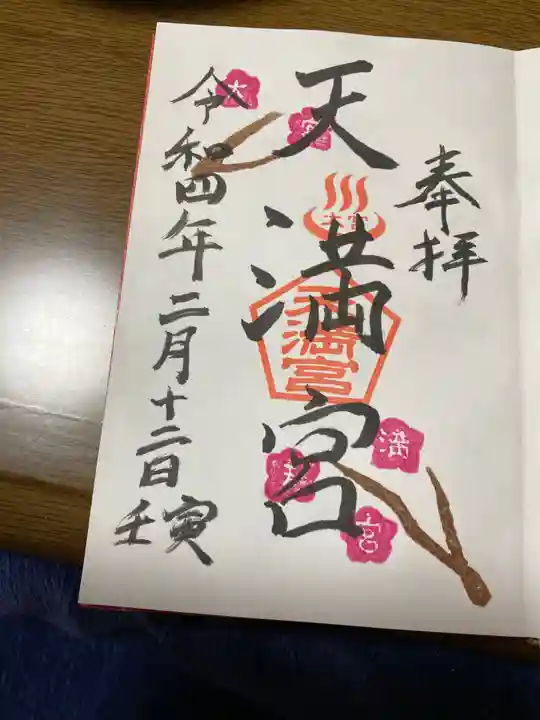 奉拝
天満宮
天満宮
満
宮
令和四年二月十二日壬寅